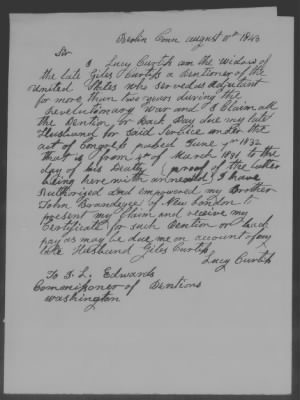 Berlin Conn August 11th 1843
Sir
I Lucy Curtiss am the widow of
the late Giles Curtiss a Pentioner of the
United States who served as Adjutant
for more than two years during the
Revolutionary War and I Claim all
the Pention or Back Pay due my late
Husband for Said Service under the
act of Congress passed June 7th 1832
that is from 4th of March 1831 to the
day of his Death, proof of the latter
being here with annexed I have
Authorised and empowered my Brother
John Brandegee of New London to
present my Claim and receive my
Certificate for such Pention or back
pay as may be due me on account of my
late Husband Giles Curtiss
Lucy Curtiss
To J. L. Edwards
Commissioner of Pentions
Washington